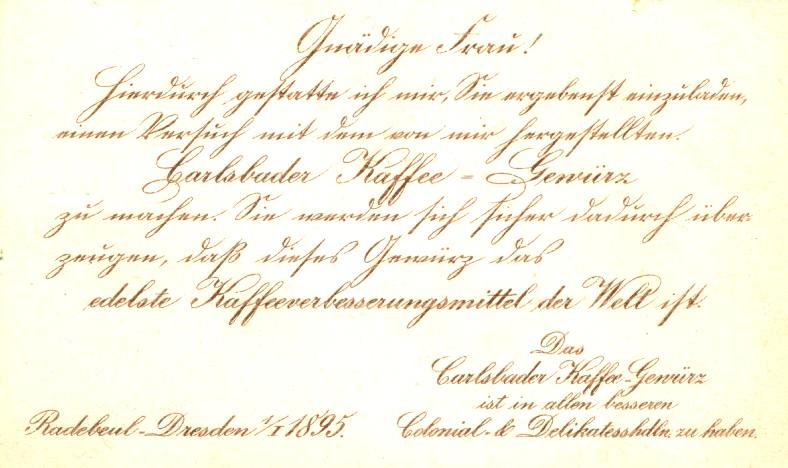 Gnädige Frau!
Hierdurch gestatte ich mir, Sie ergebenst einzuladen,
einen Versuch mit dem von mir hergestellten
Carlsbader Kaffee-Gewürz
zu machen. Sie werden sich sicher dadurch über-
zeugen, daß dieses Gewürz das
edelste Kaffeeverbesserungsmittel der Welt ist.
Das
Carlsbader Kaffee-Gewürz
ist in allen besseren
Radebeul-Dresden 1/I 1895.
Colonial- & Delikatesshdln. zu haben.